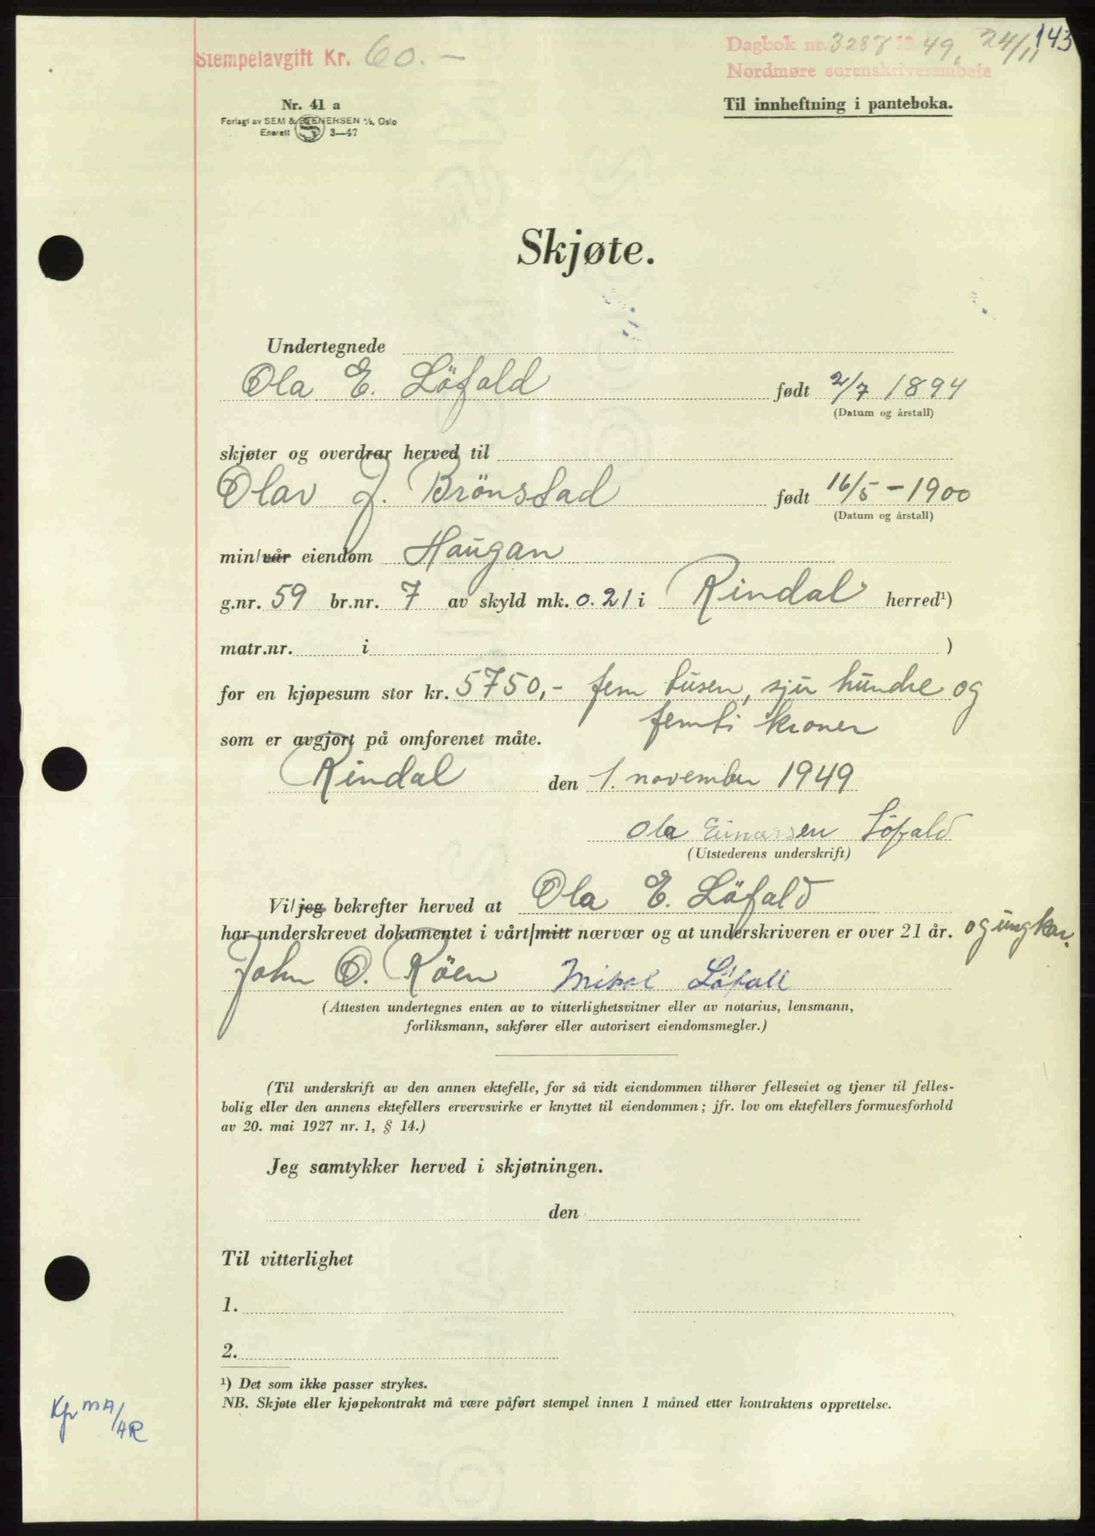 143
Stempelavgift Kr. 60.-
Dagbok nr. 3287 1949, 24/11
Nordmøre sorenskriverembete
Nr. 41 a
Forlagt av SEM & STENERSEN A/S, Oslo
Enerett S 3—47
Til innheftning i panteboka.
Skjøte.
Undertegnede
Ola E. Löfald født 2/7 1894
(Datum og årstall)
skjøter og overdrar herved til
Olav J. Brönstad født 16/5-1900
(Datum og årstall)
min/vår eiendom Haugan
g.nr. 59 br.nr. 7 av skyld mk. 0.21 i Rindal herred¹)
matr.nr. i )
for en kjøpesum stor kr. 5750,- fem tusen, sju hundre og
femti kroner
som er avgjort på omforenet måte.
Rindal den 1. november 1949
Ola Einarsen Löfald
(Utstederens underskrift)
Vi/jeg bekrefter herved at Ola E. Löfald
har underskrevet dokumentet i vårt/mitt nærvær og at underskriveren er over 21 år. og ungkar.
John O. Röen Mikal Löfall
(Attesten undertegnes enten av to vitterlighetsvitner eller av notarius, lensmann,
forliksmann, sakfører eller autorisert eiendomsmegler.)
(Til underskrift av den annen ektefelle, for så vidt eiendommen tilhører felleseiet og tjener til felles-
bolig eller den annens ektefellers ervervsvirke er knyttet til eiendommen; jfr. lov om ektefellers formuesforhold
av 20. mai 1927 nr. 1, § 14.)
Jeg samtykker herved i skjøtningen.
den
Til vitterlighet
1.
2.
¹) Det som ikke passer strykes.
NB. Skjøte eller kjøpekontrakt må være påført stempel innen 1 måned etter kontraktens opprettelse.
Kfr MA/AR